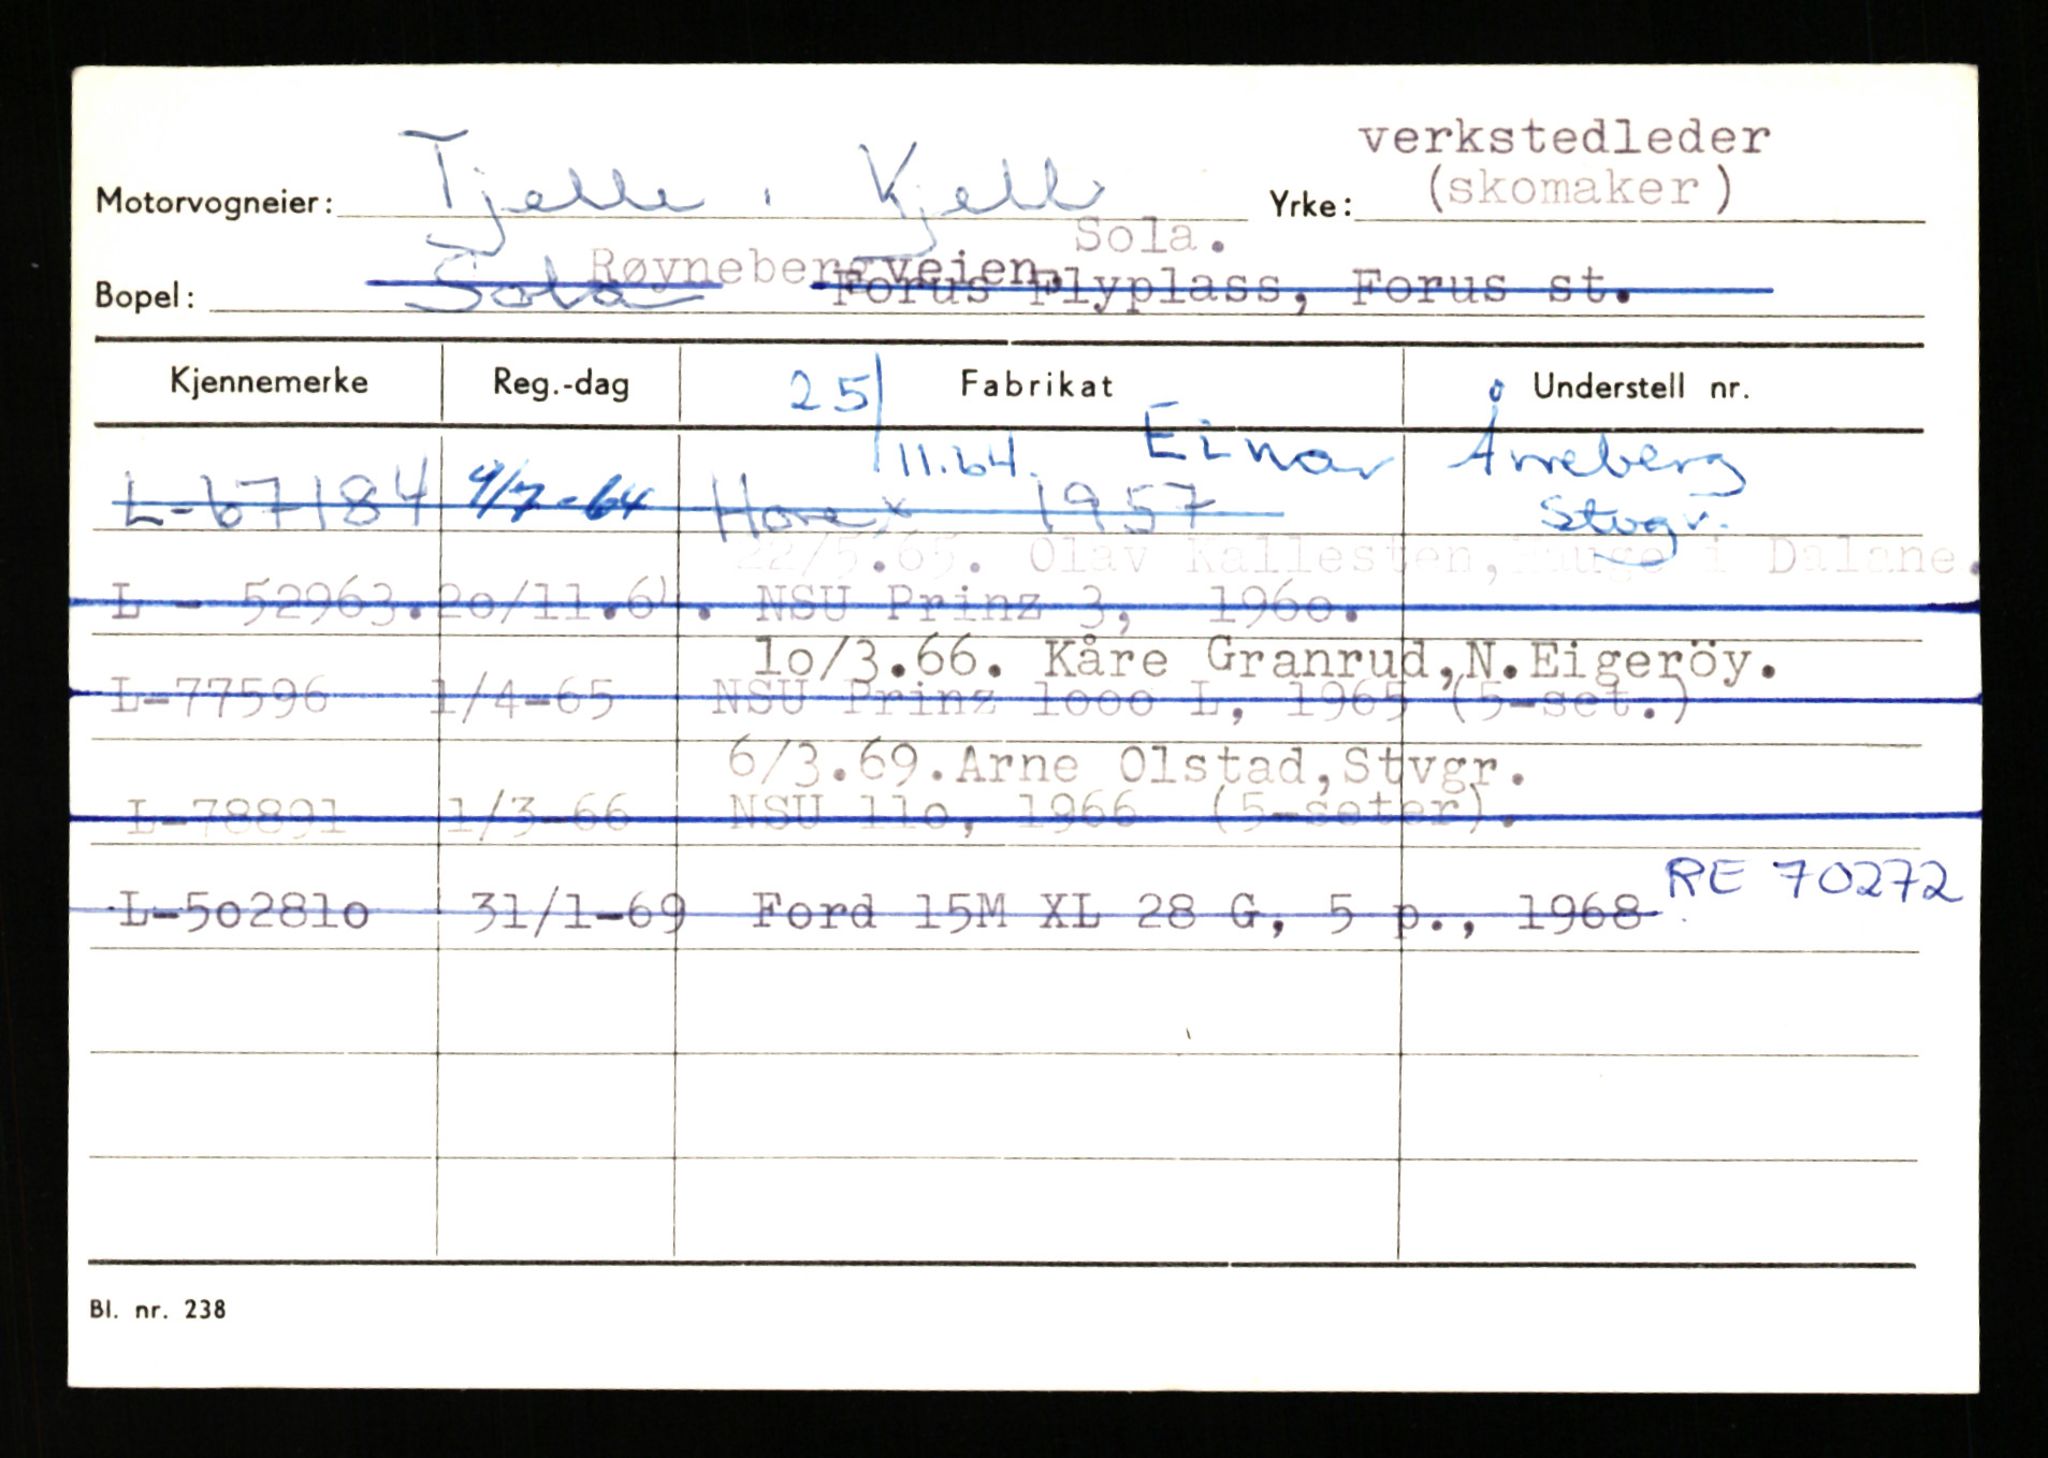 verkstedleder
Motorvogneier: Tjelle, Kjell Yrke: (skomaker)
Sola.
Røynebergveien.
Bopel: Sola Forus Flyplass, Forus st.
Kjennemerke Reg.-dag Fabrikat Understell nr.
25/11.64. Einar Årreberg
Stvgr.
L-67184 4/7-64 Horex 1957
22/5.65. Olav Kallesten, Hauge i Dalane.
L - 52963. 2o/11.64. NSU Prinz 3, 196o.
1o/3.66. Kåre Granrud,N.Eigeröy.
L-77596 1/4-65 NSU Prinz 1ooo L, 1965 (5-set.)
6/3.69.Arne Olstad,Stvgr.
L-78891 1/3-66 NSU 11o, 1966 (5-seter).
RE 70272
L-5o281o 31/1-69 Ford 15M XL 28 G, 5 p., 1968
Bl. nr. 238